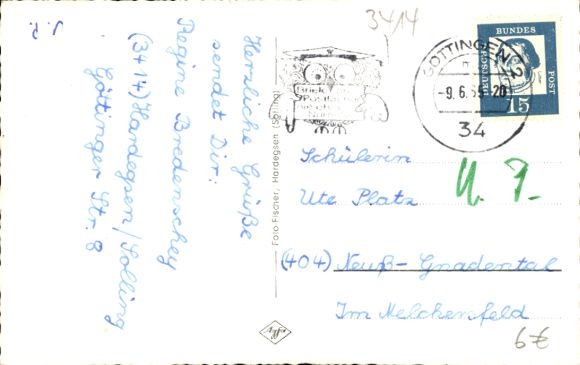 J. R.
Herzliche Grüße
sendet Dir:
Regine Bredenschey
(3414) Hardegsen/Solling
Göttinger Str. 8
3414
GÖTTINGEN 2
-9.6.65-20
34
DEUTSCHE
BUNDES
POST
15
Foto Fischer, Hardegsen (Solling)
Schülerin
Ute Platz
U. P.
(404) Neuß-Gnadental
Im Melchersfeld
6€